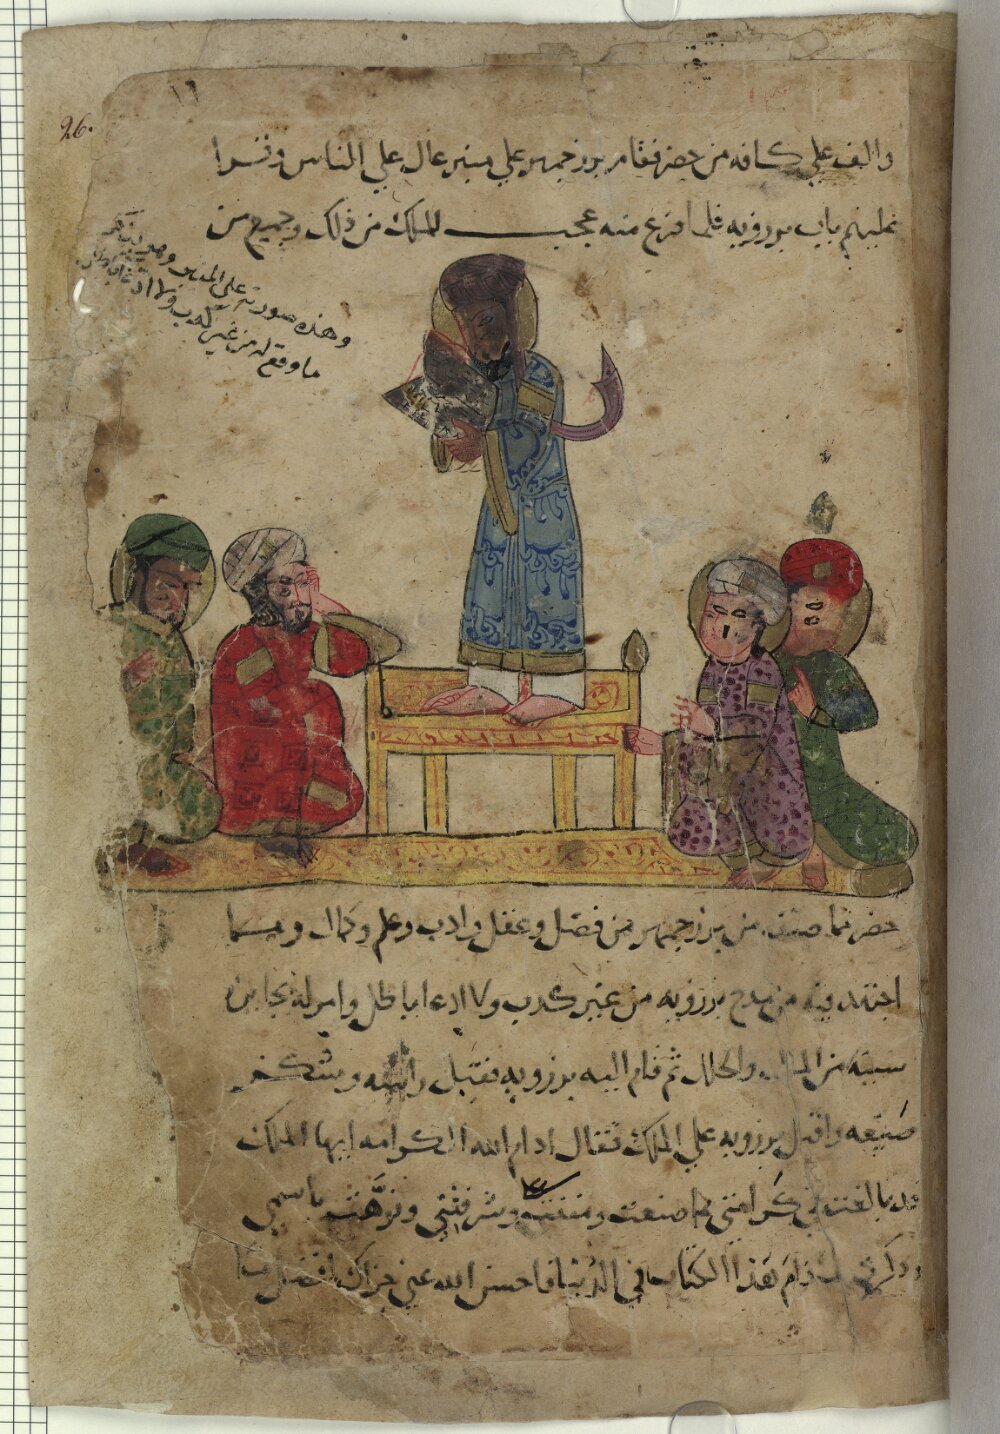 ١٦
26.
والف علي كافه من حضر فقام بزرجمهر علي منبر عال علي الناس وقرا
عليهم باب برزويه فلما فرغ منه عجب الملك من ذلك وجميع من
وهذه صورته علي المنبر وهو يذكر
ما وقع له من غير كدب ولا ادعا
حضر مما صنف من بزرجمهر من فضل وعقل وادب وعلم وكمال وما
اجتهد فيه من مدح برزويه من غير كدب ولا ادعا باطل وامر له بجايزه
سنيه من المال والحلل ثم قام اليه برزويه فقبل راسه وشكر
صنيعه واقبل برزويه علي الملك فقال ادام الله لك الكرامه ايها الملك
قد بالغت في كرامتي بما صنعت وشرفتني ونوهت باسمي
ما دام هذا الكتاب في الدنيا فاحسن الله عني جزاك افضل ما